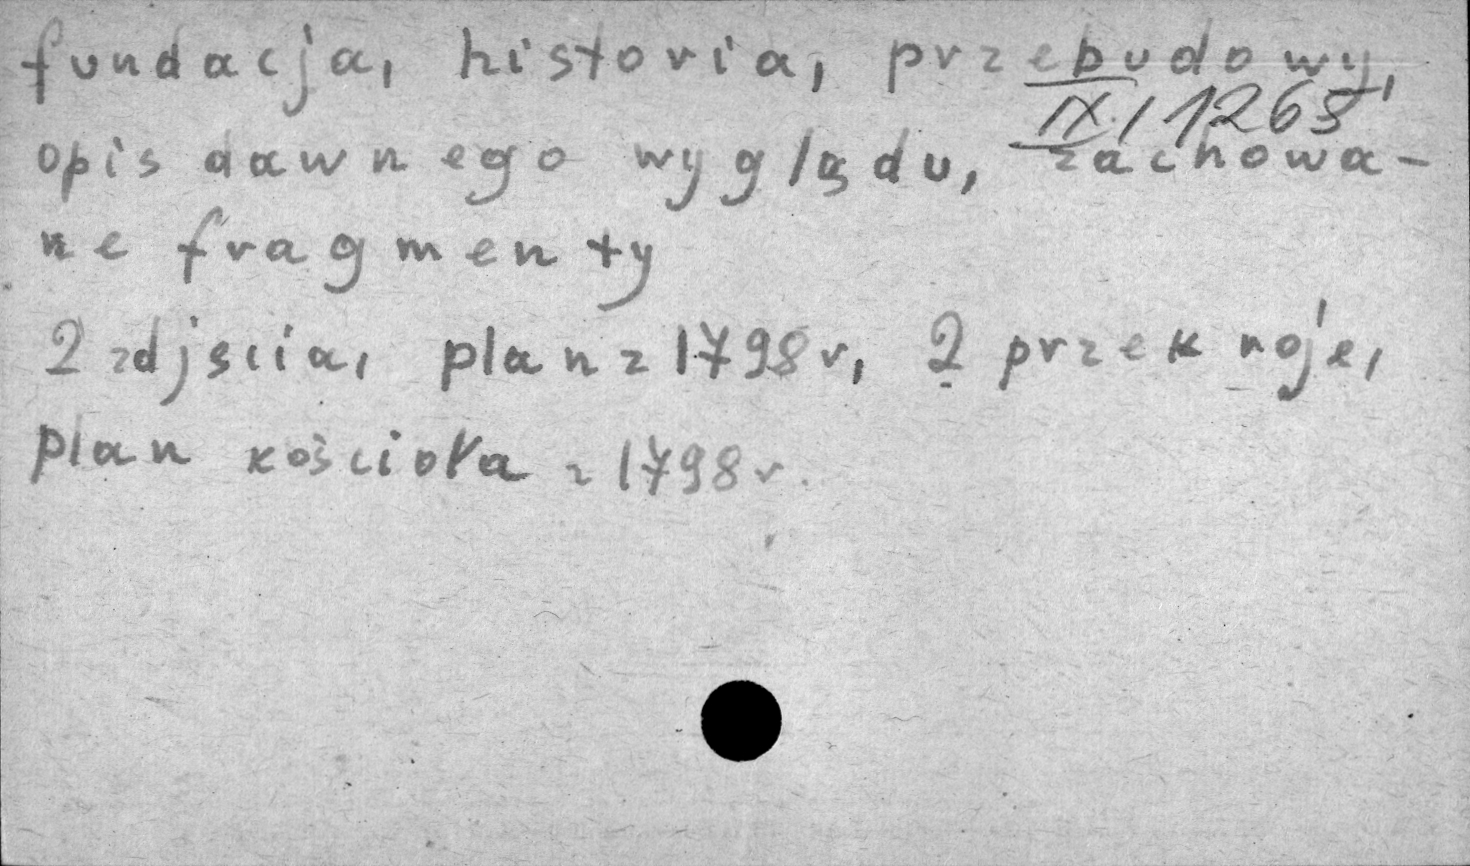 fundacja, historia, przebudowy,
IX/1268
opis dawnego wyglądu, zachowa-
ne fragmenty
2 zdjęcia, plan z 1798 r, 2 przekroje,
plan kościoła z 1798 r.